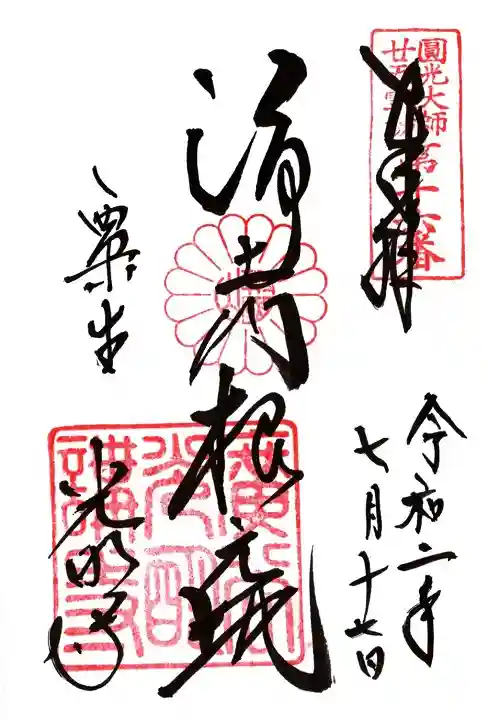 奉拝
圓光大師
廿五霊場第十六番
浄土門根元地
令和二年
七月十七日
粟生
光明寺